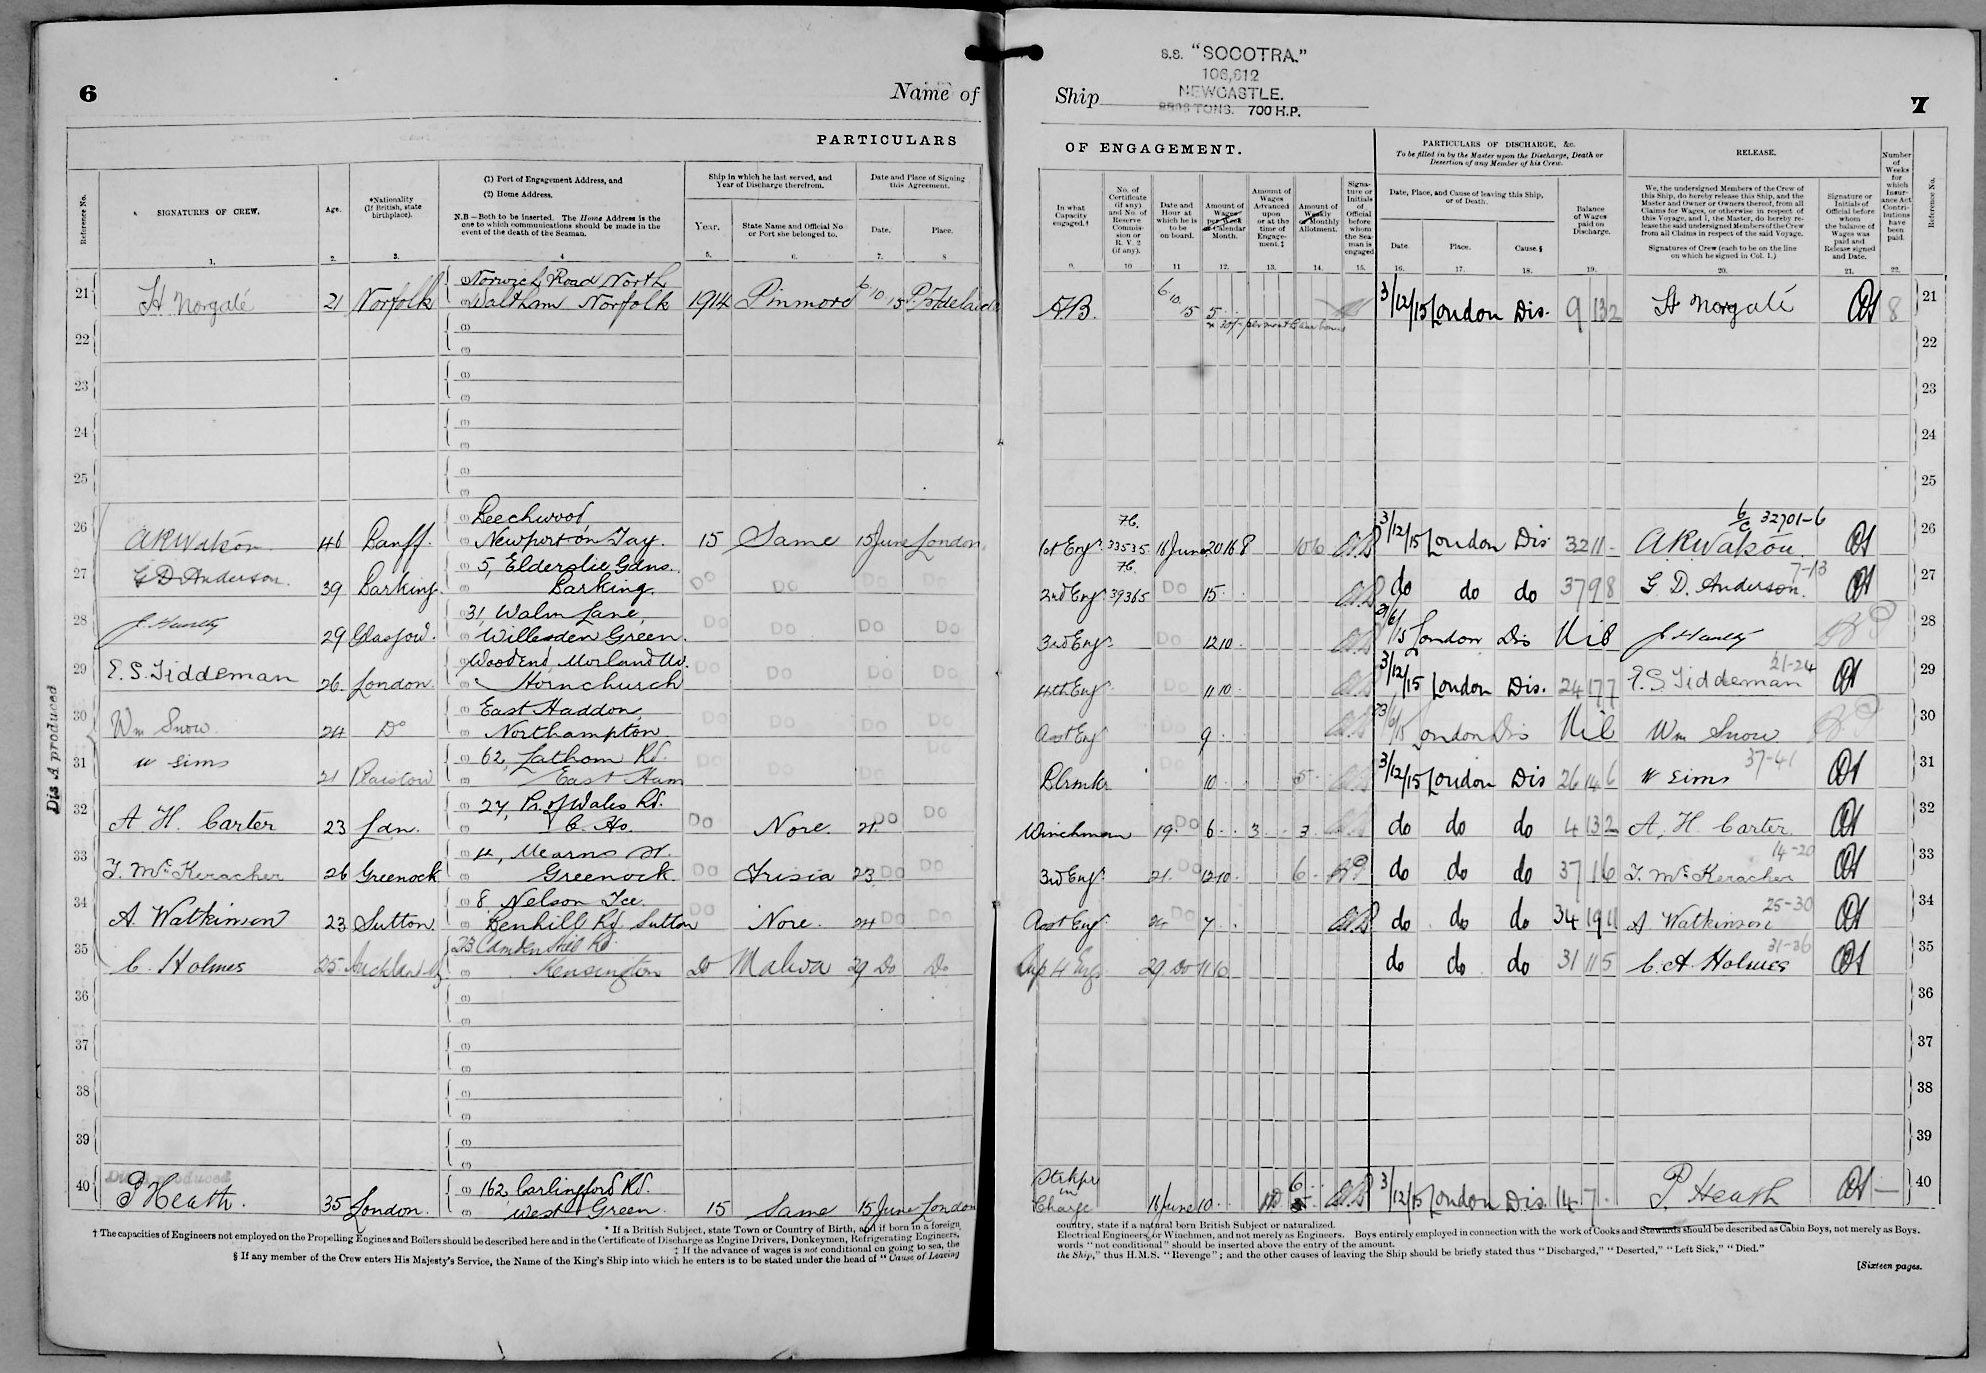 6
Name of
PARTICULARS
Reference No.
SIGNATURES OF CREW.
Age.
*Nationality
(If British, state
birthplace).
(1) Port of Engagement Address, and
(2) Home Address.
N.B—Both to be inserted. The Home Address is the
one to which communications should be made in the
event of the death of the Seaman.
Ship in which he last served, and
Year of Discharge therefrom.
Year.
State Name and Official No
or Port she belonged to.
Date and Place of Signing
this Agreement.
Date.
Place.
1. 2. 3. 4 5. 6. 7. 8
(1) Norwich Road North
21 H Norgate 21 Norfolk (2) Waltham Norfolk 1914 Pinmore 6 10 15 Pt Adelaide
22
23
24
25
26 (1) Beechwood,
A R Watson 46 Banff. Newport-on-Tay. 15 Same 15 June London.
27 5, Elderslie Gdns.
G D Anderson. 39 Barking. Barking. Do Do Do Do
28 31, Walm Lane,
29 Glasgow. Willesden Green. Do Do Do Do
29 Woodend, Morland Av.
E. S. Tiddeman 26. London. Hornchurch Do Do Do Do
30 East Haddon,
Wm Snow 24 Do Northampton Do Do Do Do
31 62, Lathom Rd.
W Sims 21 Plaistow East Ham Do Do Do Do
32 27, Pr. of Wales Rd.
A H. Carter 23 Ldn. C. Ho. Do Nore. 21 Do Do
33 4, Mearns St.
T. McKeracher 26 Greenock Greenock. Do Frisia 23 Do Do
34 8 Nelson Tce.
A. Watkinson 23 Sutton. Benhill Rd Sutton Do Nore. 24 Do Do
35 23 Camden Hill Rd.
C. Holmes 25 Auckland NZ Kensington Do Malwa 29 Do Do
36
37
38
39
40 162, Carlingford Rd.
P Heath. 35 London. West Green. 15 Same 15 June London
Dis A produced
* If a British Subject, state Town or Country of Birth, and if born in a foreign
† The capacities of Engineers not employed on the Propelling Engines and Boilers should be described here and in the Certificate of Discharge as Engine Drivers, Donkeymen, Refrigerating Engineers,
‡ If the advance of wages is not conditional on going to sea, the
§ If any member of the Crew enters His Majesty's Service, the Name of the King's Ship into which he enters is to be stated under the head of "Cause of Leaving
S.S. "SOCOTRA."
106,612
NEWCASTLE.
TONS. 700 H.P.
Ship
7
OF ENGAGEMENT.
PARTICULARS OF DISCHARGE, &c.
To be filled in by the Master upon the Discharge, Death or
Desertion of any Member of his Crew.
RELEASE.
In what
Capacity
engaged.†
No. of
Certificate
(if any)
and No. of
Reserve
Commis-
sion or
R. V. 2
(if any).
Date and
Hour at
which he is
to be
on board.
Amount of
Wages
per Week
or Calendar
Month.
Amount of
Wages
Advanced
upon
or at the
time of
Engage-
ment.‡
Amount of
Weekly
or Monthly
Allotment.
Signa-
ture or
Initials
of
Official
before
whom
the Sea-
man is
engaged
Date, Place, and Cause of leaving this Ship,
or of Death.
Date.
Place.
Cause.§
Balance
of Wages
paid on
Discharge.
We, the undersigned Members of the Crew of
this Ship, do hereby release this Ship, and the
Master and Owner or Owners thereof, from all
Claims for Wages, or otherwise in respect of
this Voyage, and I, the Master, do hereby re-
lease the said undersigned Members of the Crew
from all Claims in respect of the said Voyage.
Signatures of Crew (each to be on the line
on which he signed in Col. 1.)
Signature or
Initials of
Official before
whom
the balance of
Wages was
paid and
Release signed
and Date.
Number
of
Weeks
for
which
Insur-
ance Act
Contri-
butions
have
been
paid.
Reference No.
9. 10 11 12. 13. 14. 15. 16. 17. 18. 19. 20. 21. 22.
A.B. 6 10 15 5 3/12/15 London Dis. 9 13 2 H Norgate 8 21
22
23
24
25
1st Engr. 33535 16 June 20 16 8 3/12/15 London Dis 32 11 - A R Watson. 26
2nd Engr. 39365 Do 15 do do do 37 9 8 G D. Anderson. 7-13 27
3rd Engr. Do 12 10 London Dis Nil 28
4th Engr. Do 11 10 3/12/15 London Dis. 24 17 7 E. S. Tiddeman 21-24 29
Asst Engr Do 9 London Dis Nil Wm Snow 30
Blrmkr Do 10 5 3/12/15 London Dis 26 14 6 W Sims 37-41 31
Winchman 19 Do 6 3 3 do do do 4 13 2 A. H. Carter. 32
3rd Engr. 21 Do 12 10 6 do do do 37 1 6 T. McKeracher 14-20 33
Asst Engr 24 Do 7 do do do 34 19 11 A Watkinson 25-30 34
Sup 4 Engr 29 Do 11 10 do do do 31 11 5 C. A. Holmes 31-36 35
36
37
38
39
Strkpr
in
Charge 16 June 10 3/12/15 London Dis. 14 7 P Heath 40
country, state if a natural born British Subject or naturalized.
Electrical Engineers, or Winchmen, and not merely as Engineers. Boys entirely employed in connection with the work of Cooks and Stewards should be described as Cabin Boys, not merely as Boys.
words "not conditional" should be inserted above the entry of the amount.
the Ship," thus H.M.S. "Revenge"; and the other causes of leaving the Ship should be briefly stated thus "Discharged," "Deserted," "Left Sick," "Died."
[Sixteen pages.